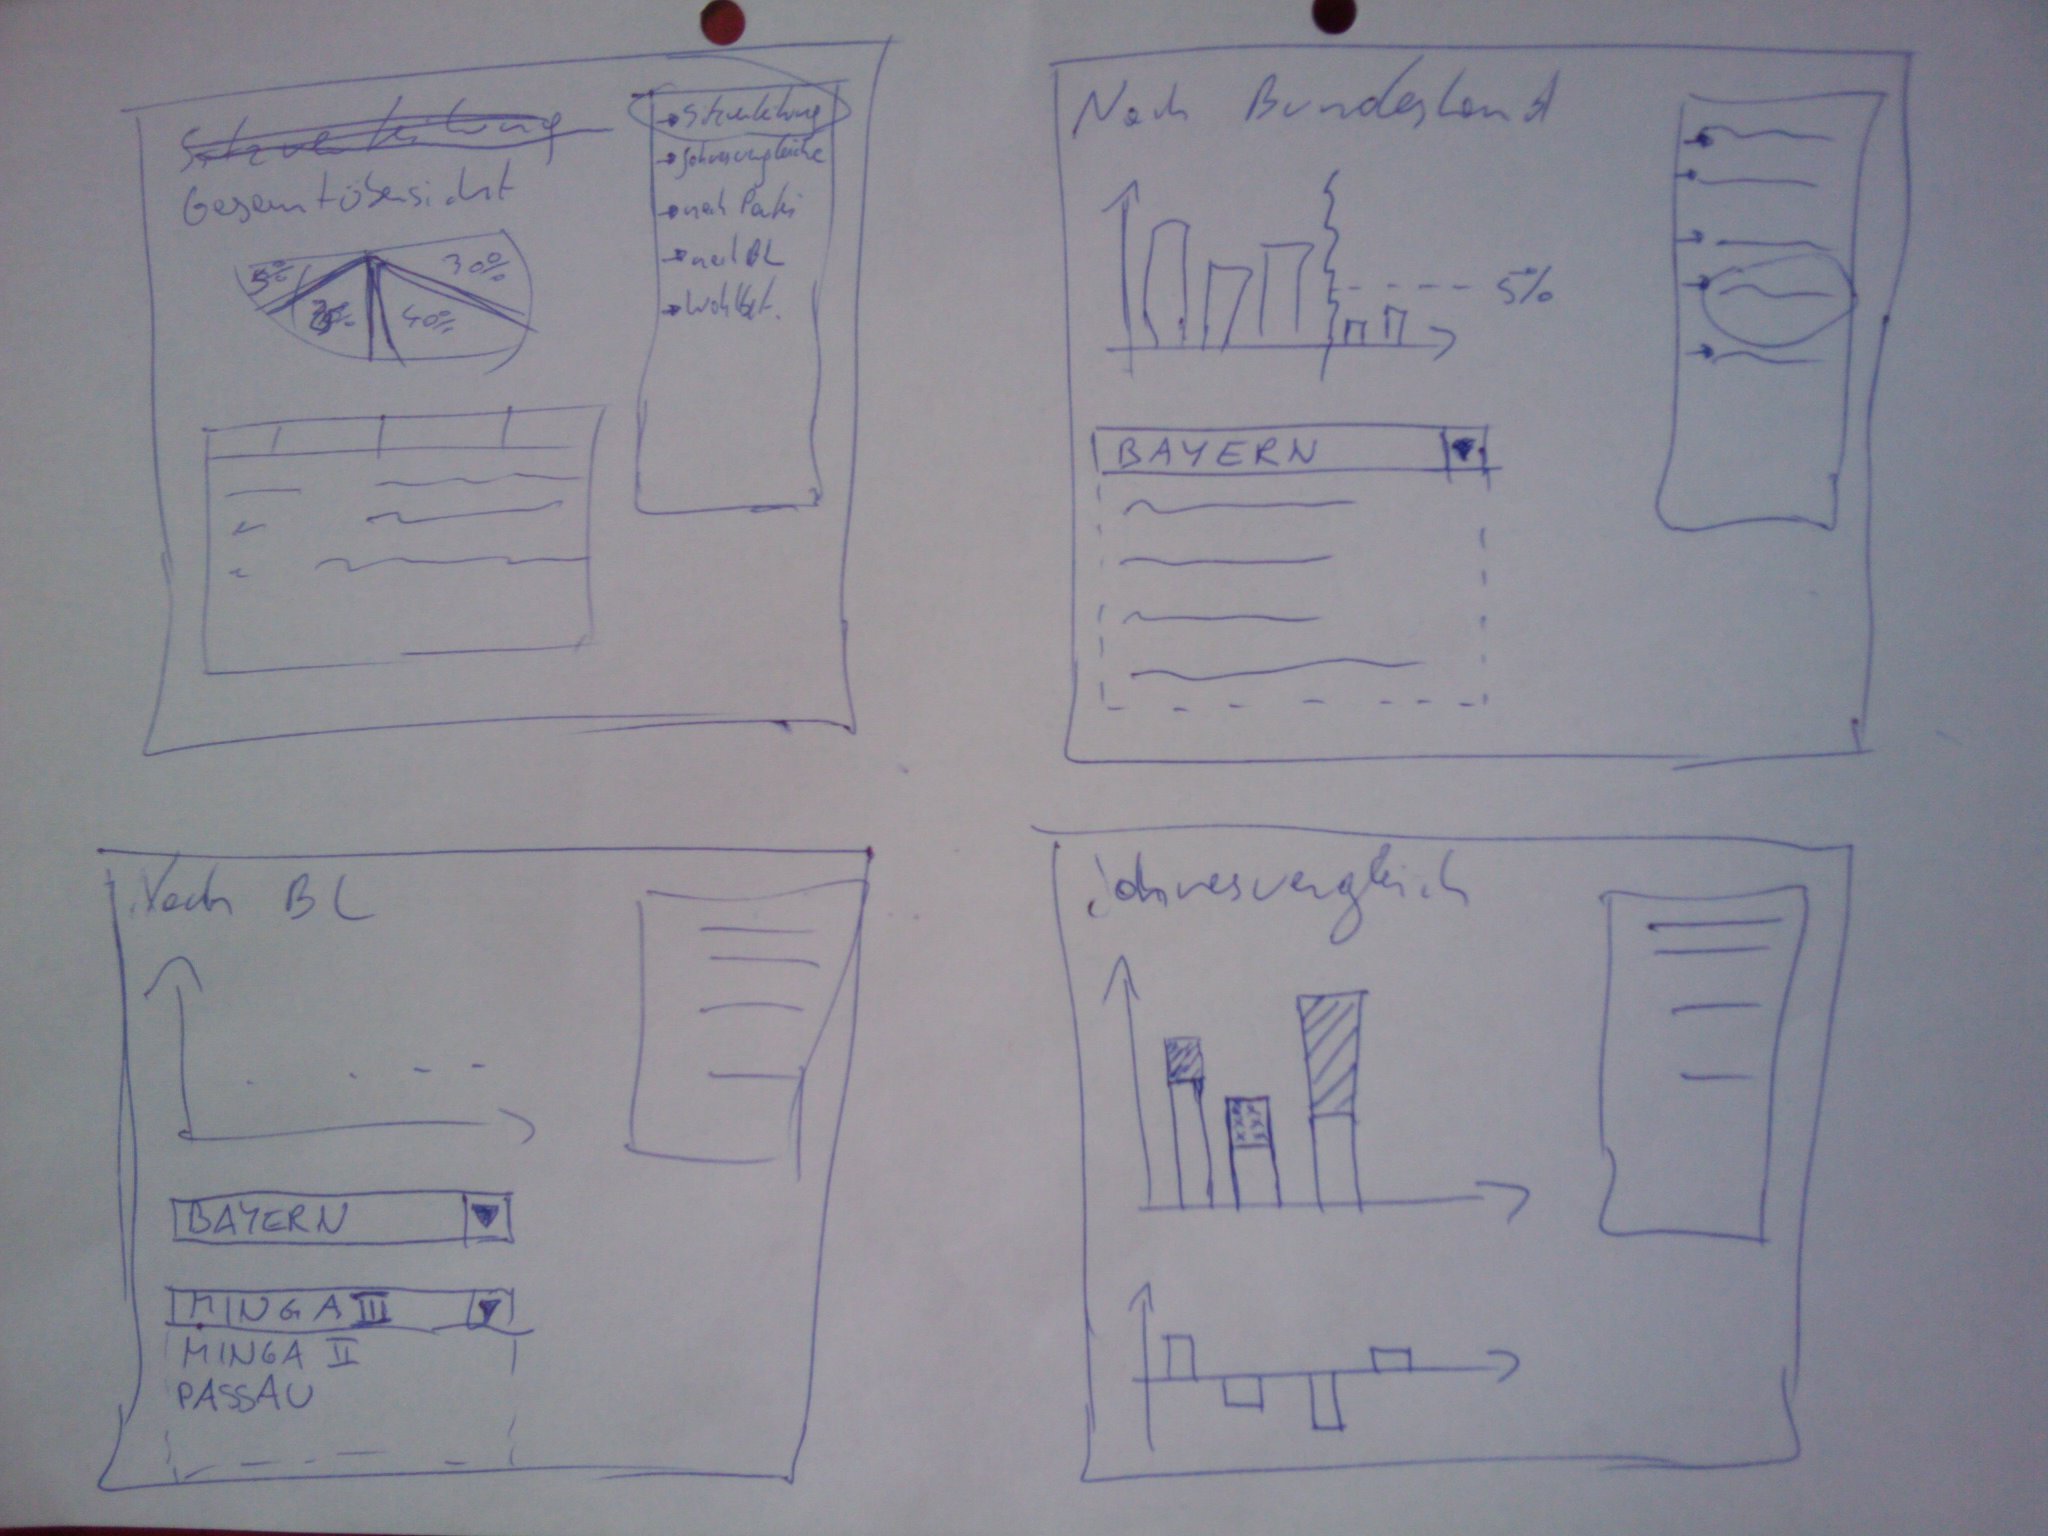 Sitzverteilung
Gesamtübersicht
30%
40%
→ Sitzverteilung
→ Jahresvergleiche
→ nach Partei
→ nach BL
Nach Bundesland
5%
BAYERN
Nach BL
BAYERN
MINGA III
MINGA II
PASSAU
Jahresvergleich